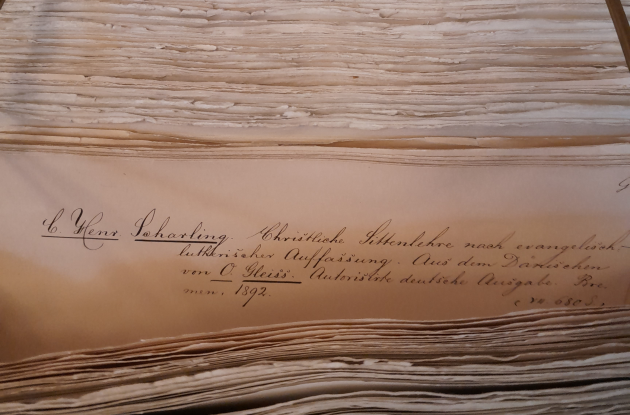 C Henr Scharling. Christliche Sittenlehre nach evangelisch-
lutherischer Auffassung. Aus dem Dänischen
von O. Gleiss. Autorisirte deutsche Ausgabe. Bre
men, 1892.